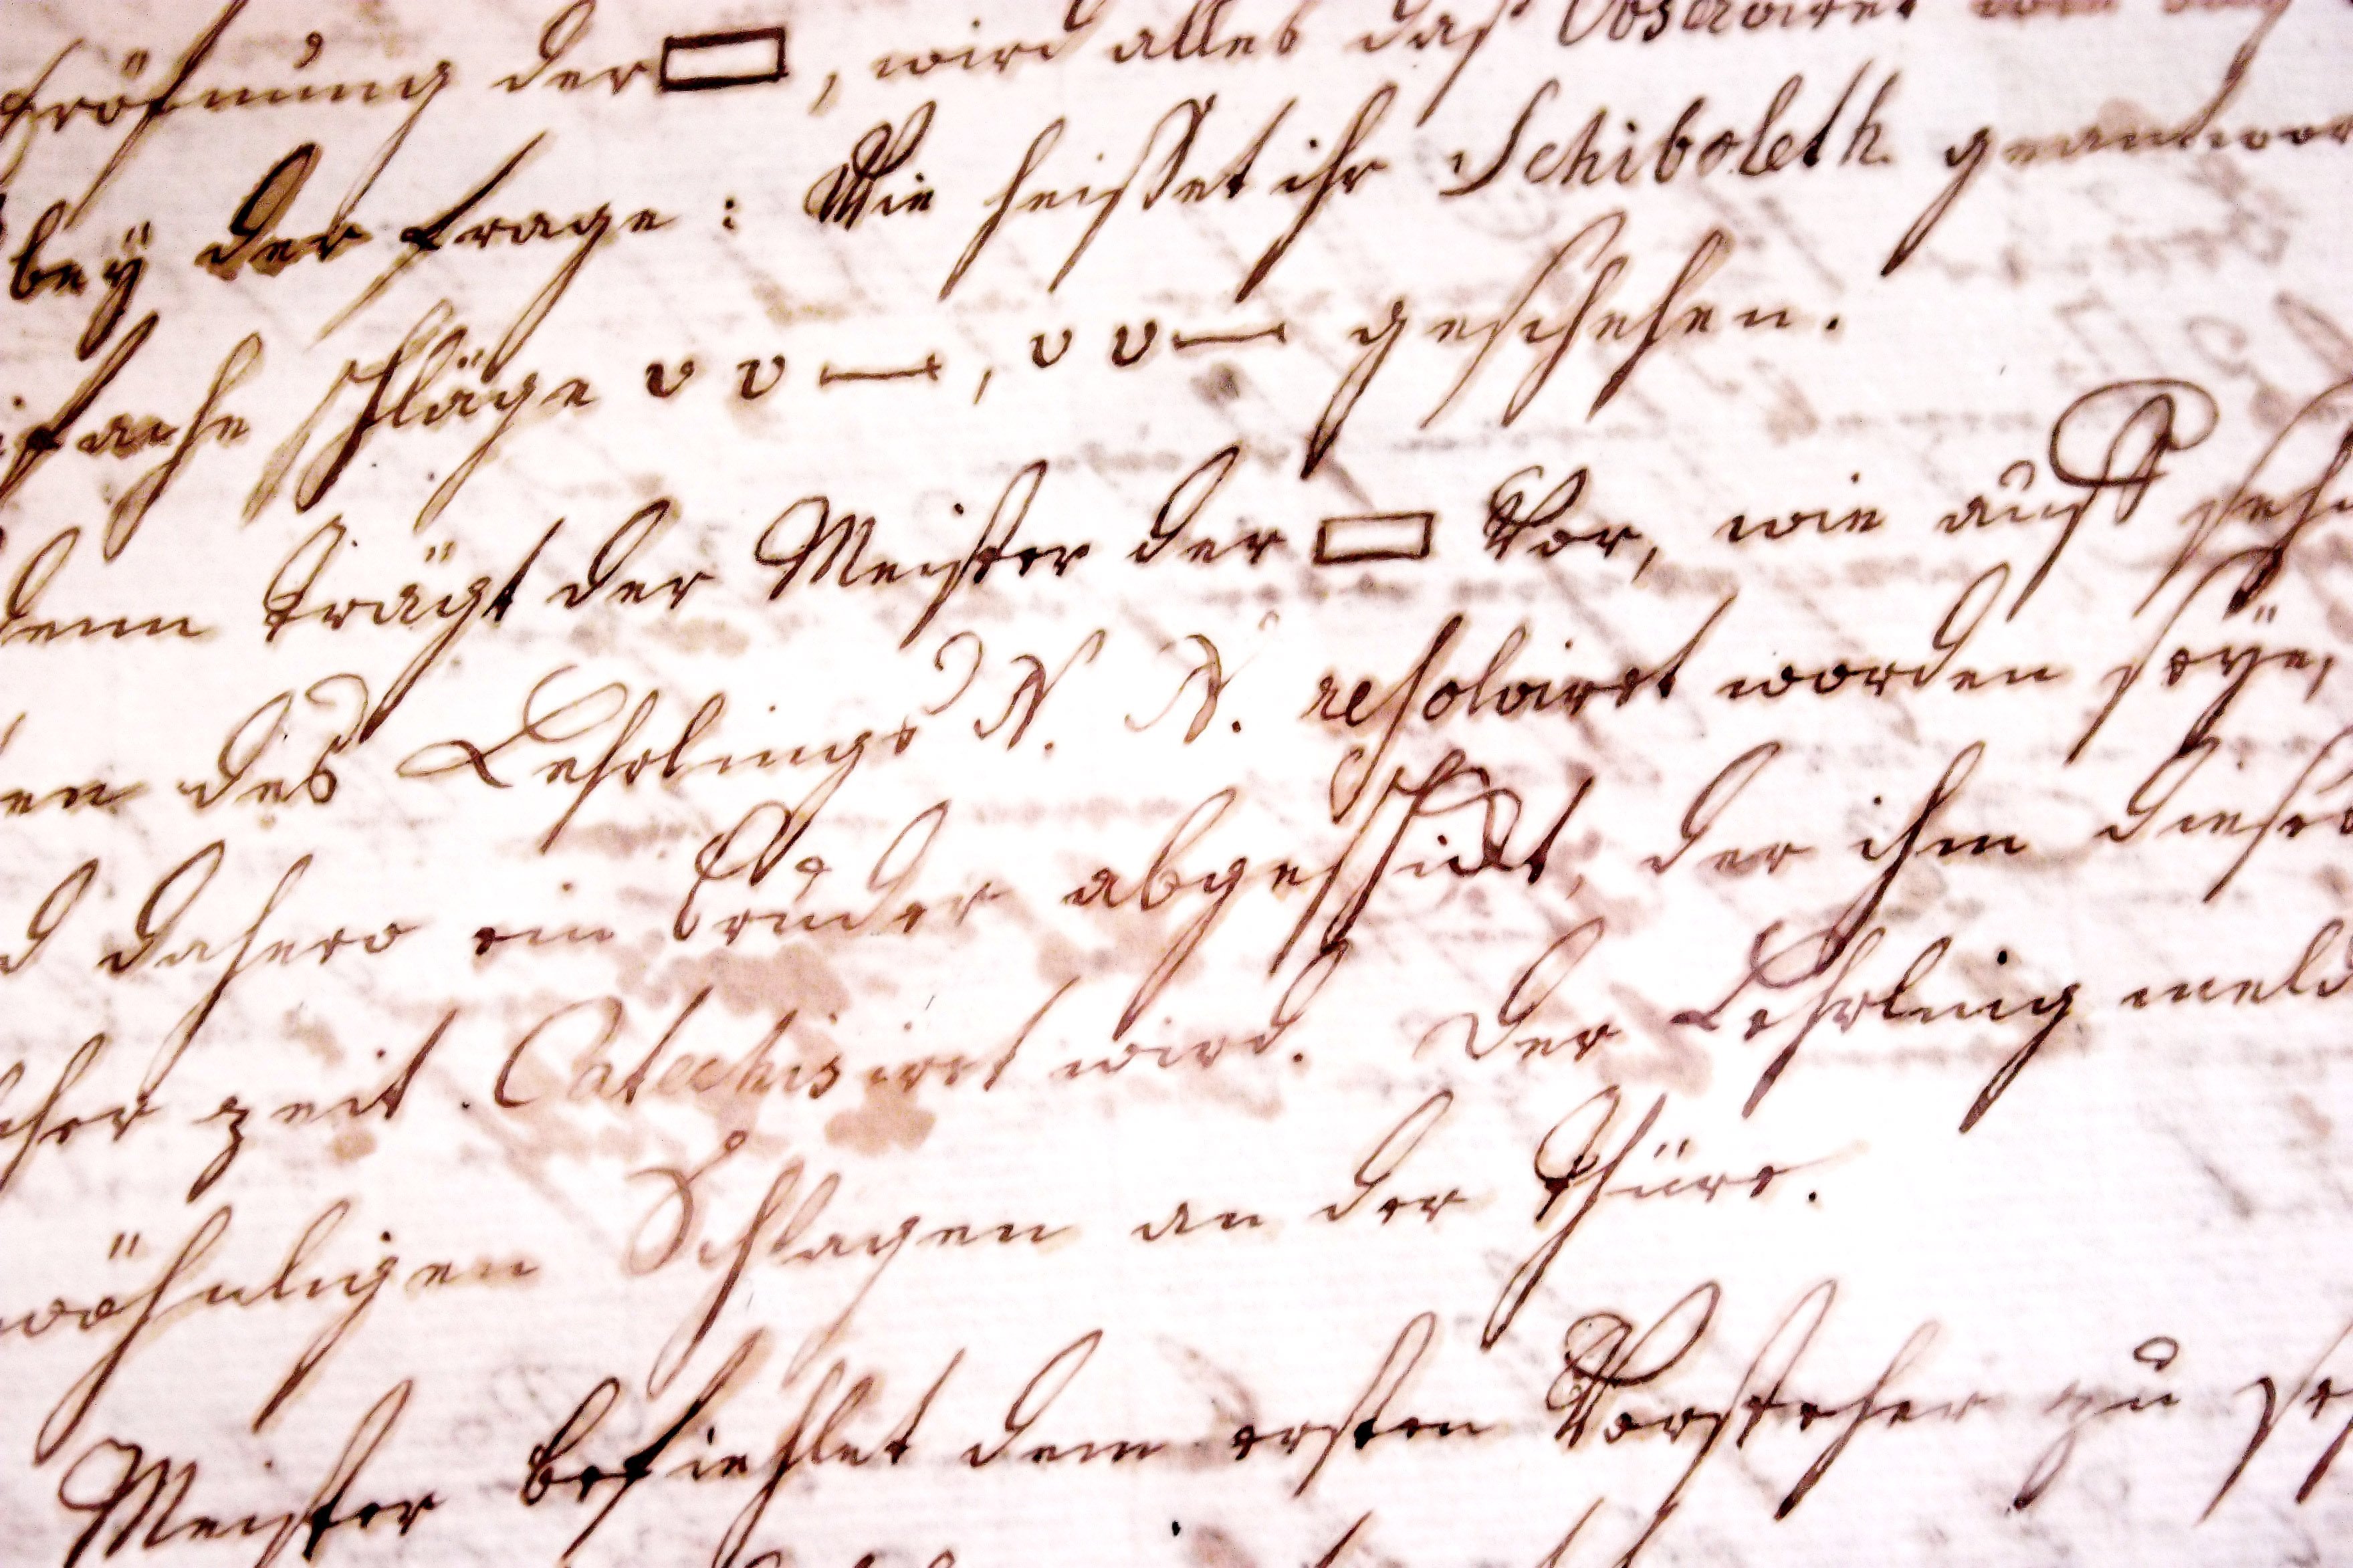 Eröfnung der ▭, wird alles daß Observiret
bey der frage: Wie heisset ihr Schiboleth geantwor
fache schläge υ υ —, υ υ — geschehen.
denn trägt der Meister der ▭ Vor, wie auff
en des Lehrlings N. N. resolviret worden seye,
d dahero ein Bruder abgeschickt, der ihm dieses
cher zeit Catechisiret wird. Der Lehrling meld
wöhnligen Schlagen an der thüre.
Meister befiehlet dem ersten Vorsteher zu